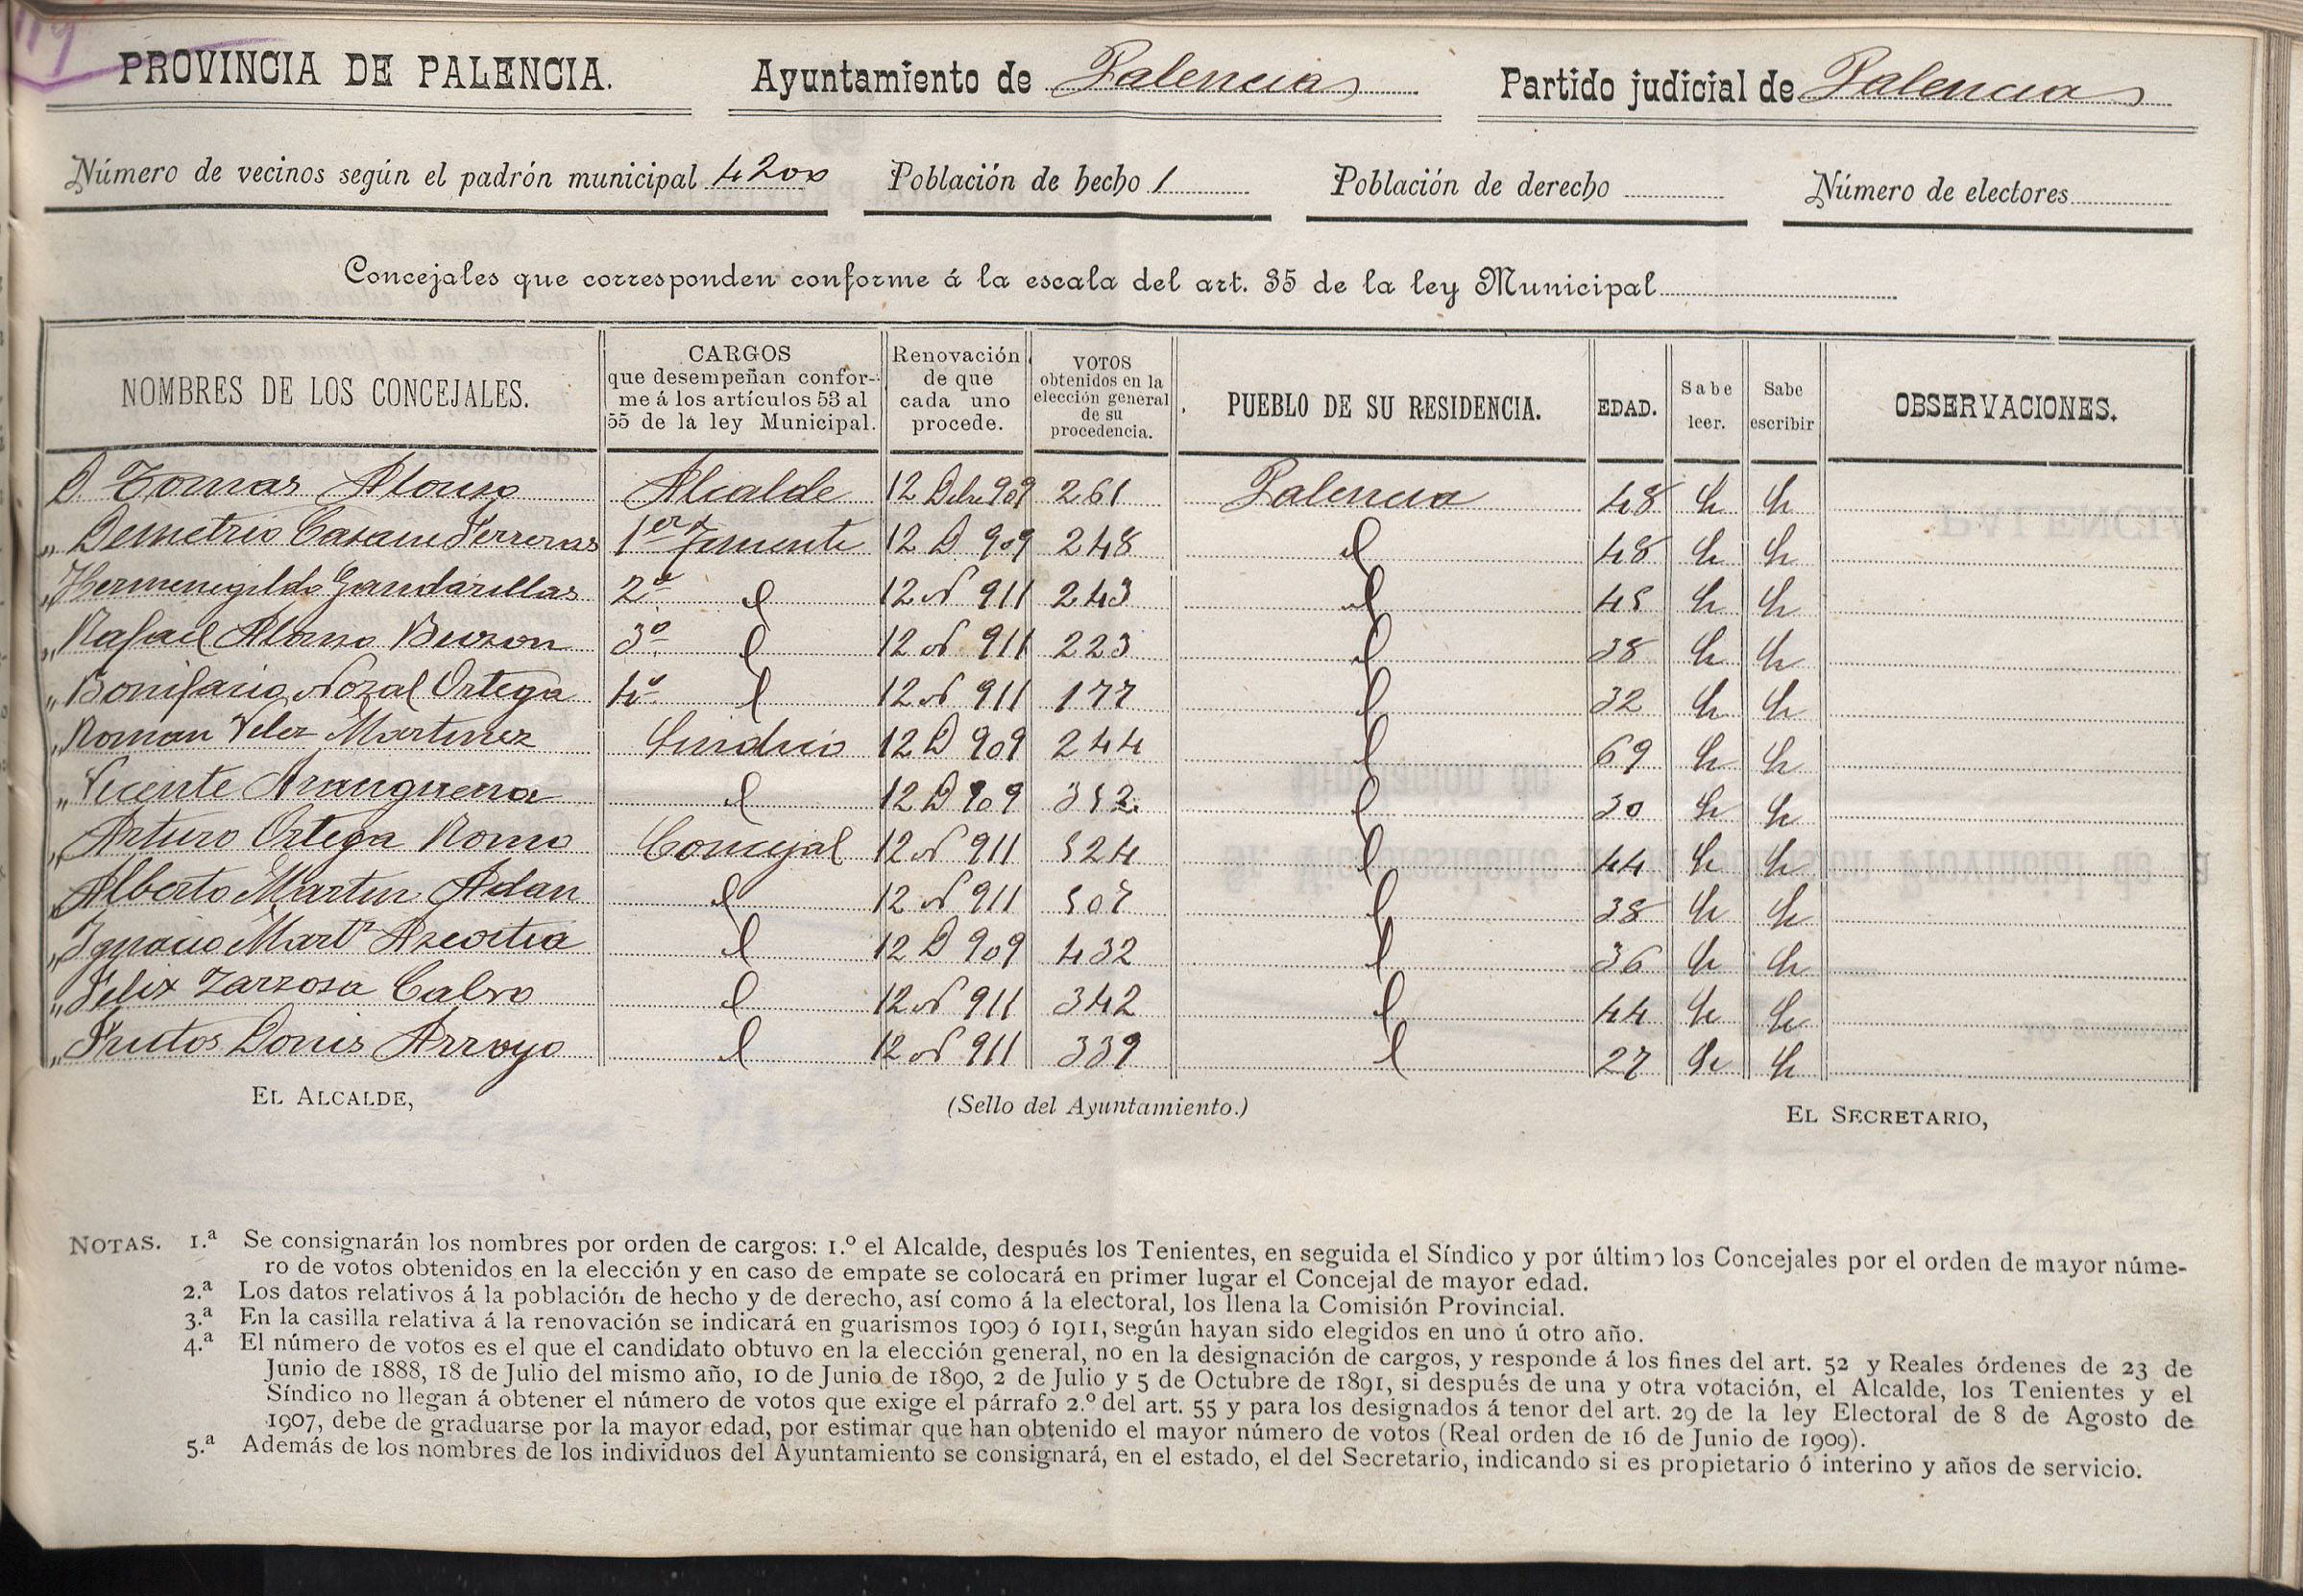 119
PROVINCIA DE PALENCIA. Ayuntamiento de Palencia Partido judicial de Palencia
Número de vecinos según el padrón municipal 4200 Población de hecho 1 Población de derecho Número de electores
Concejales que corresponden conforme á la escala del art. 35 de la ley Municipal
NOMBRES DE LOS CONCEJALES.
CARGOS
que desempeñan confor-
me á los artículos 53 al
55 de la ley Municipal.
Renovación
de que
cada uno
procede.
VOTOS
obtenidos en la
elección general
de su
procedencia.
PUEBLO DE SU RESIDENCIA.
EDAD.
Sabe
leer.
Sabe
escribir
OBSERVACIONES.
D. Tomas Alonso Alcalde 12 Dbre 909 261 Palencia 48
„ Demetrio Casañe Ferreras 1er Teniente 12 D 909 248 48
„ Hermenegildo Gandarillas 2º 12 N 911 243 45
„ Rafael Alonso Buzon 3º 12 N 911 223 38
„ Bonifacio Nozal Ortega 4º 12 N 911 177 32
„ Roman Velez Martinez Sindico 12 D 909 244 69
„ Vicente Aranguena 12 D 909 352 30
„ Arturo Ortega Romo Concejal 12 N 911 524 44
„ Alberto Martin Adan 12 N 911 507 38
„ Ignacio Martz Azcoitia 12 D 909 432 36
„ Felix Zarzosa Calvo 12 N 911 342 44
„ Frutos Donis Arroyo 12 N 911 339 27
EL ALCALDE, (Sello del Ayuntamiento.) EL SECRETARIO,
NOTAS. 1.ª Se consignarán los nombres por orden de cargos: 1.º el Alcalde, después los Tenientes, en seguida el Síndico y por último los Concejales por el orden de mayor núme-
ro de votos obtenidos en la elección y en caso de empate se colocará en primer lugar el Concejal de mayor edad.
2.ª Los datos relativos á la población de hecho y de derecho, así como á la electoral, los llena la Comisión Provincial.
3.ª En la casilla relativa á la renovación se indicará en guarismos 1909 ó 1911, según hayan sido elegidos en uno ú otro año.
4.ª El número de votos es el que el candidato obtuvo en la elección general, no en la designación de cargos, y responde á los fines del art. 52 y Reales órdenes de 23 de
Junio de 1888, 18 de Julio del mismo año, 10 de Junio de 1890, 2 de Julio y 5 de Octubre de 1891, si después de una y otra votación, el Alcalde, los Tenientes y el
Síndico no llegan á obtener el número de votos que exige el párrafo 2.º del art. 55 y para los designados á tenor del art. 29 de la ley Electoral de 8 de Agosto de
1907, debe de graduarse por la mayor edad, por estimar que han obtenido el mayor número de votos (Real orden de 16 de Junio de 1909).
5.ª Además de los nombres de los individuos del Ayuntamiento se consignará, en el estado, el del Secretario, indicando si es propietario ó interino y años de servicio.